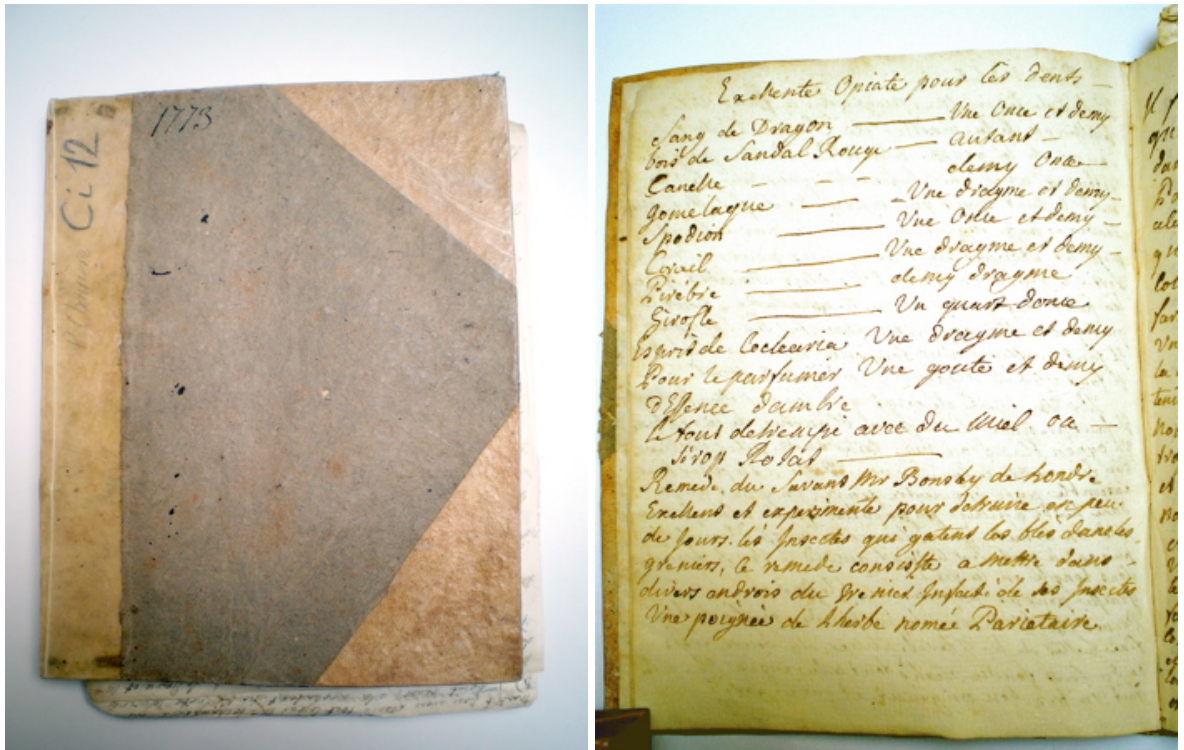 1773
Ci 12
Exellente Opiate pour les dents
Sang de Dragon — Une Once et demy
bois de Sandal Rouge — autant
Canelle - - - demy Once
gomelaque — Une dragme et demy
Spodion — Une Once et demy
Corail — Une dragme et demy
Pirèbre — demy dragme
Girofle — Un quart donce
Esprit de Cocleearia Une dragme et demy
Pour le parfumer Une goute et demy
d'Essence dambre
le tout detrempé avec du Miel ou
Sirop Rosat
Remede du Savant Mr Bonsby de Londre
Exellent et experimente pour detruire en peu
de Jours les Insectes qui gatent les bles dans les
greniers, le remede consiste a mettre dans
divers androis du grenier Infecté de ses Insectes
Une poignée de Lherbe nomée Parietaire